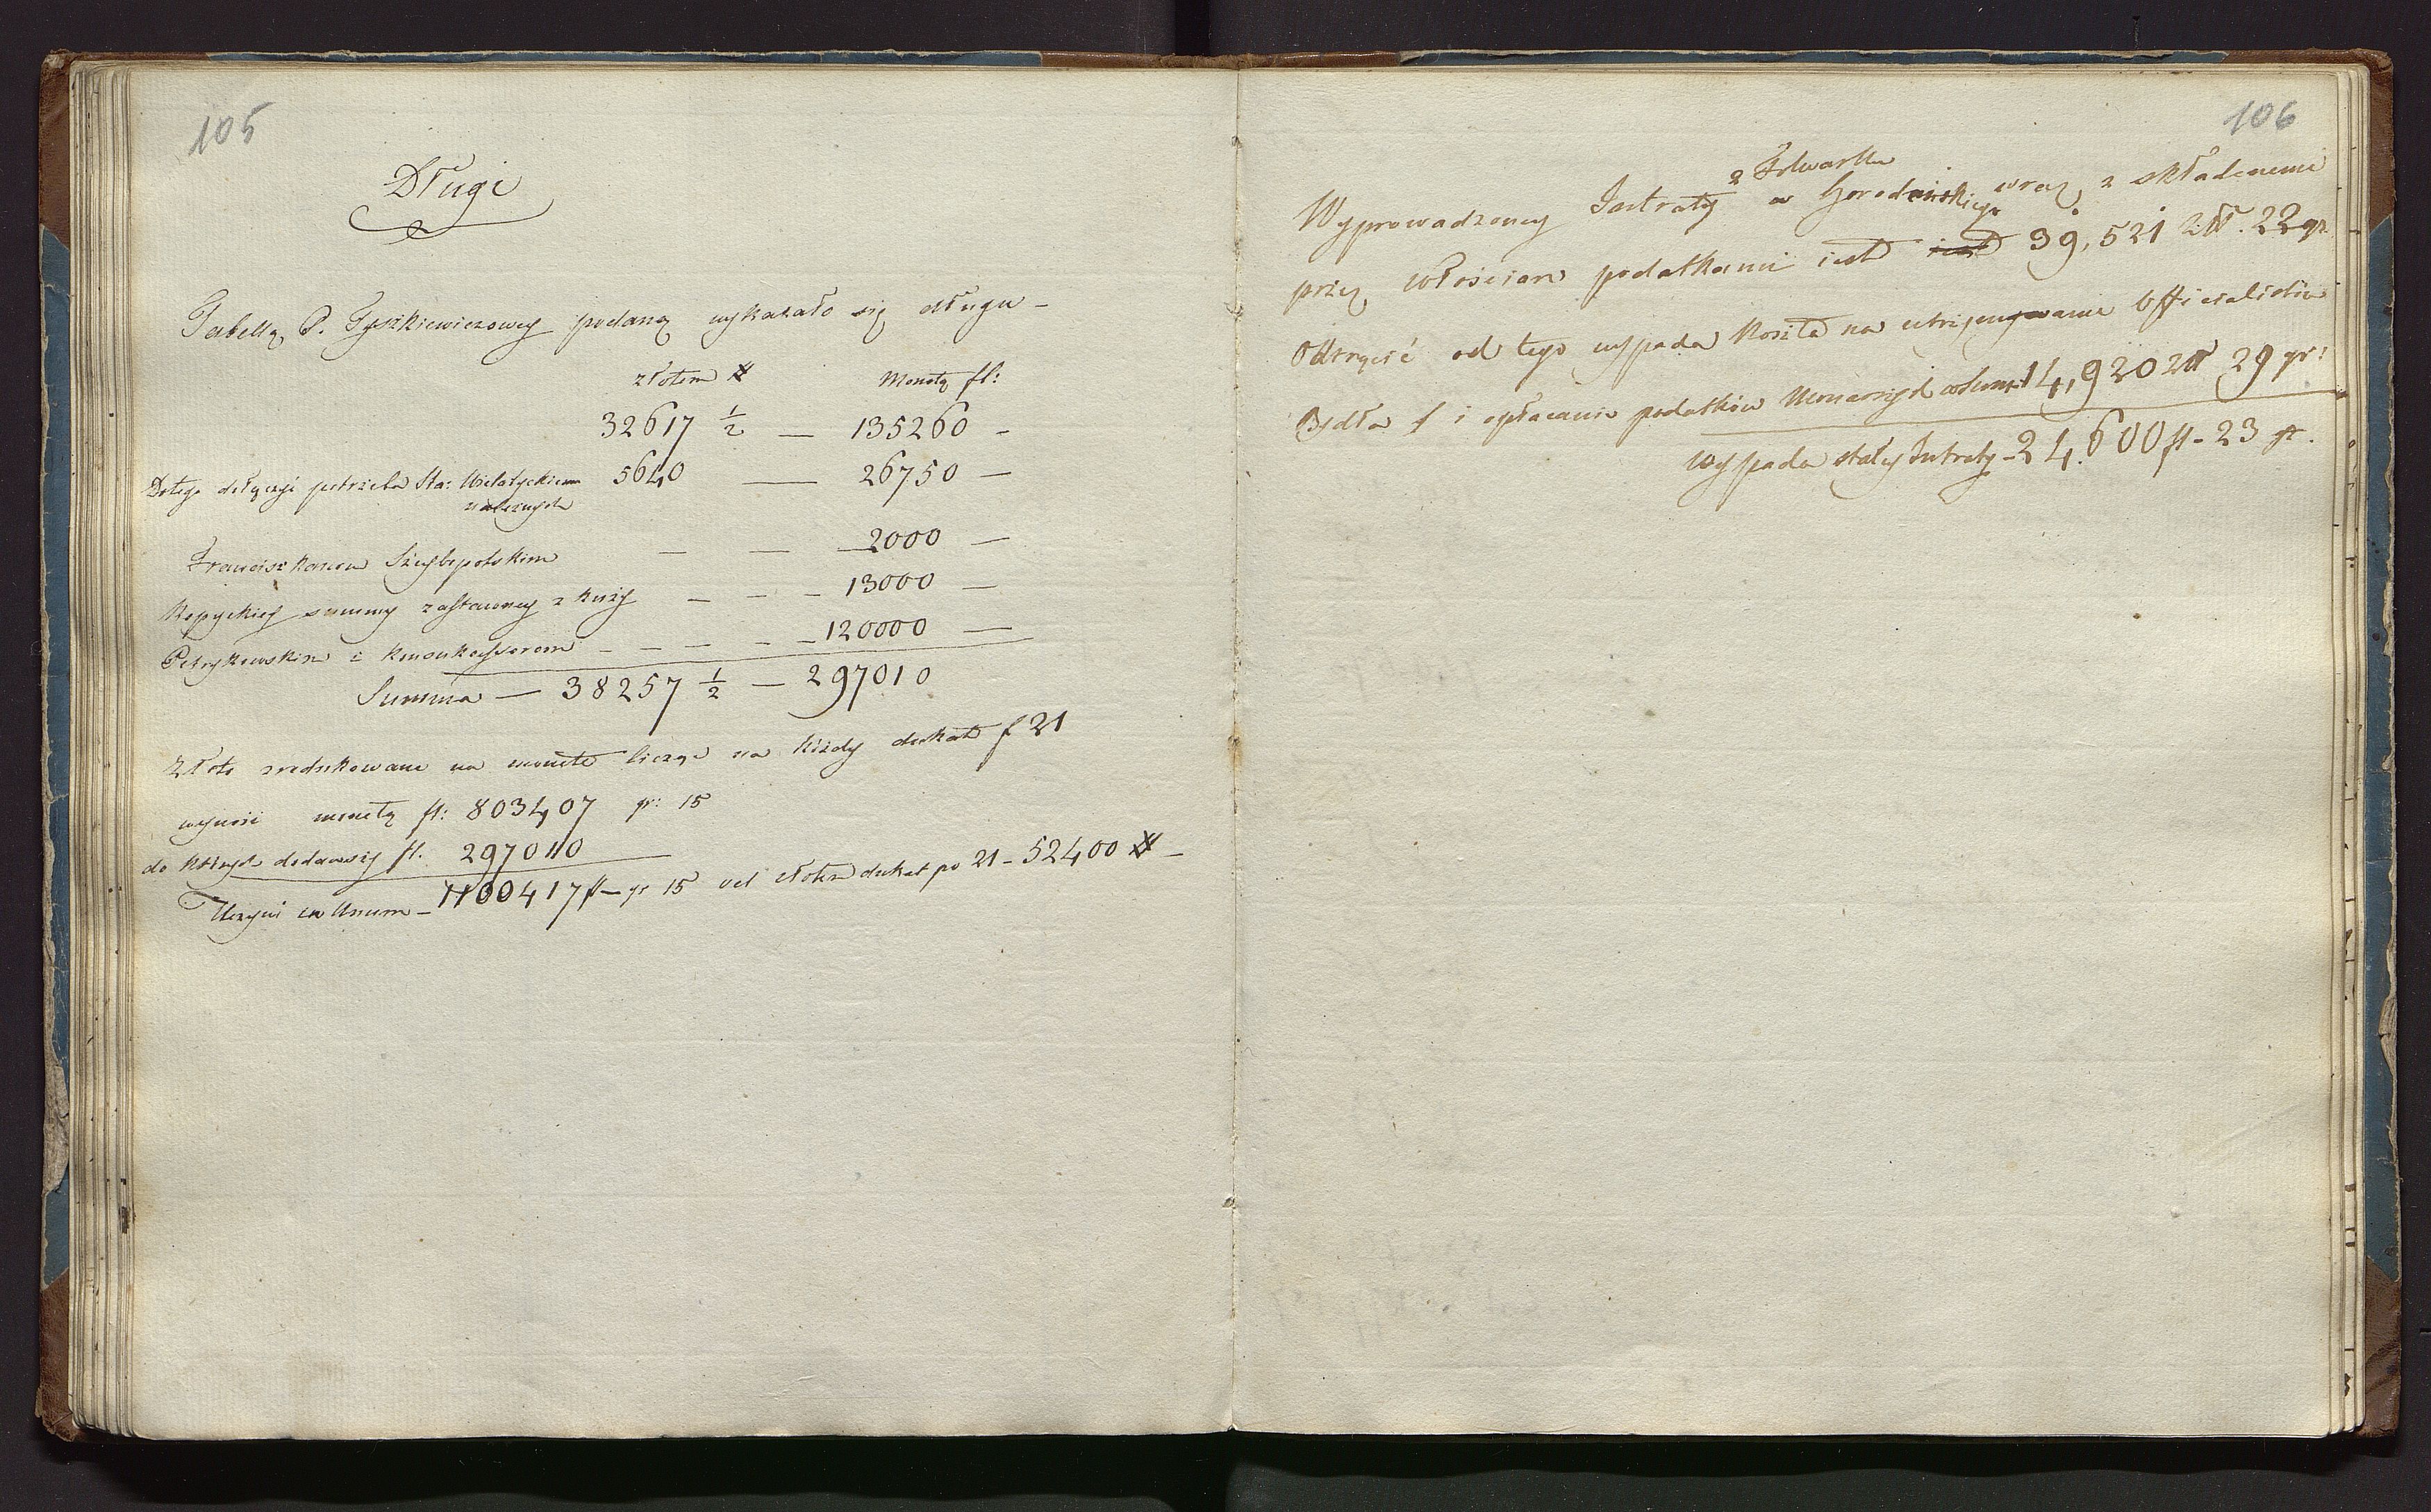 105
Długi
Tabellą P. Tyszkiewiczowey podaną wykazało się długu —
złotem # monetą fl:
32617 ½ — 135260 —
Do tego dołączyć potrzeba Sta: Wielatyckiemu 5640 — 26750 —
należnych
Franciszkanom — — 2000 —
Kopyckiey summy zastawney z Kuźy — — — 13000 —
Petrykowskim i — — — — 120000 —
Summa — 38257 ½ — 297010
Złoto zredukowane na monetę licząc na każdy dukat f 21
wynosi monetą fl: 803407 gr: 15
do których dodawszy fl. 297010
Uczyni in Unum — 1100417 fl — gr 15 vel złotem dukat po 21 — 52400 # —
106
z Folwarku
Wyprowadzoney Intraty w Horodeńskiego wraz z składanemi
przez włościan podatkami iest iest 39,521 zł. 22 gr.
Odtrącić od tego wypada koszta na utrzymywanie Officialistów
Bydła i opłacanie podatków Monarszych 14,920 zł 29 gr:
Wypada stałey Intraty — 24,600 fl - 23 gr.